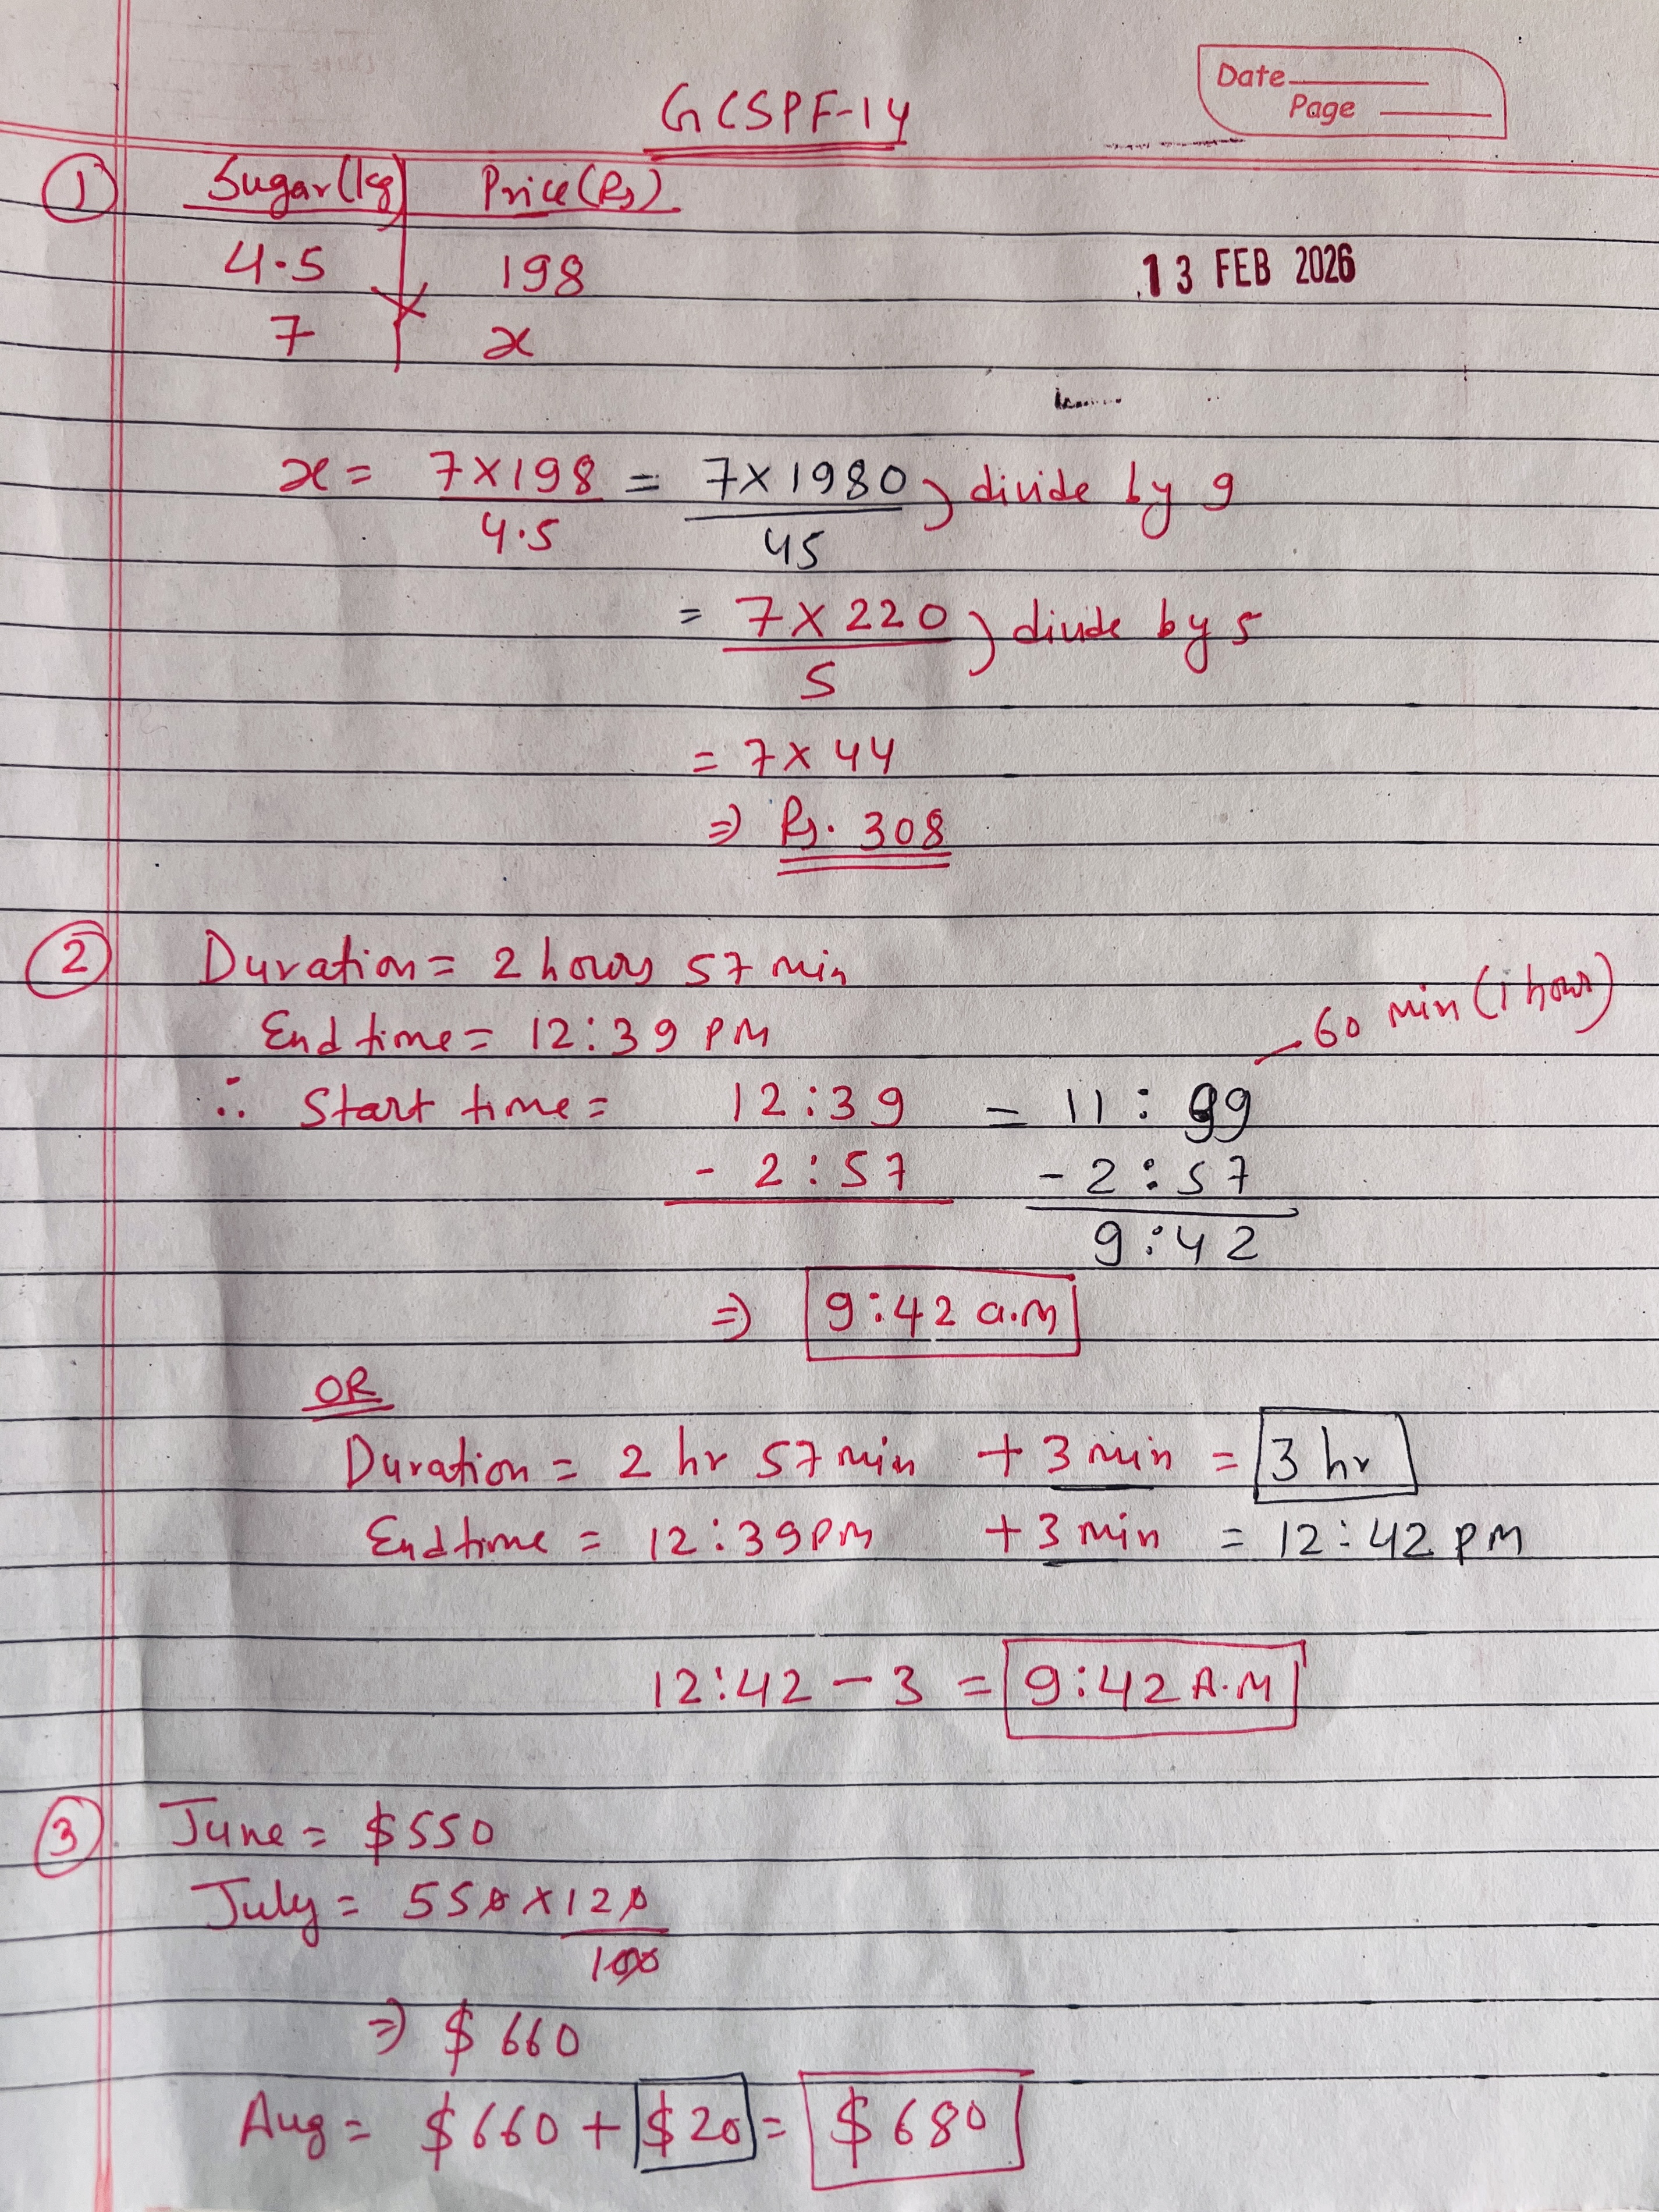 Date
Page
GCSPF-14
① Sugar(kg) Price(Rs)
4.5 198
7 x
13 FEB 2026
x = 7×198 / 4.5 = 7×1980 / 45 ) divide by 9
= 7×220 / 5 ) divide by 5
= 7×44
⇒ Rs. 308
② Duration = 2 hours 57 min
End time = 12:39 PM
60 min (1 hour)
∴ Start time = 12:39 = 11:99
- 2:57 - 2:57
9:42
⇒ 9:42 a.m
OR
Duration = 2 hr 57 min + 3 min = 3 hr
End time = 12:39 PM + 3 min = 12:42 PM
12:42 - 3 = 9:42 A.M
③ June = $550
July = 550 × 120 / 100
⇒ $660
Aug = $660 + $20 = $680